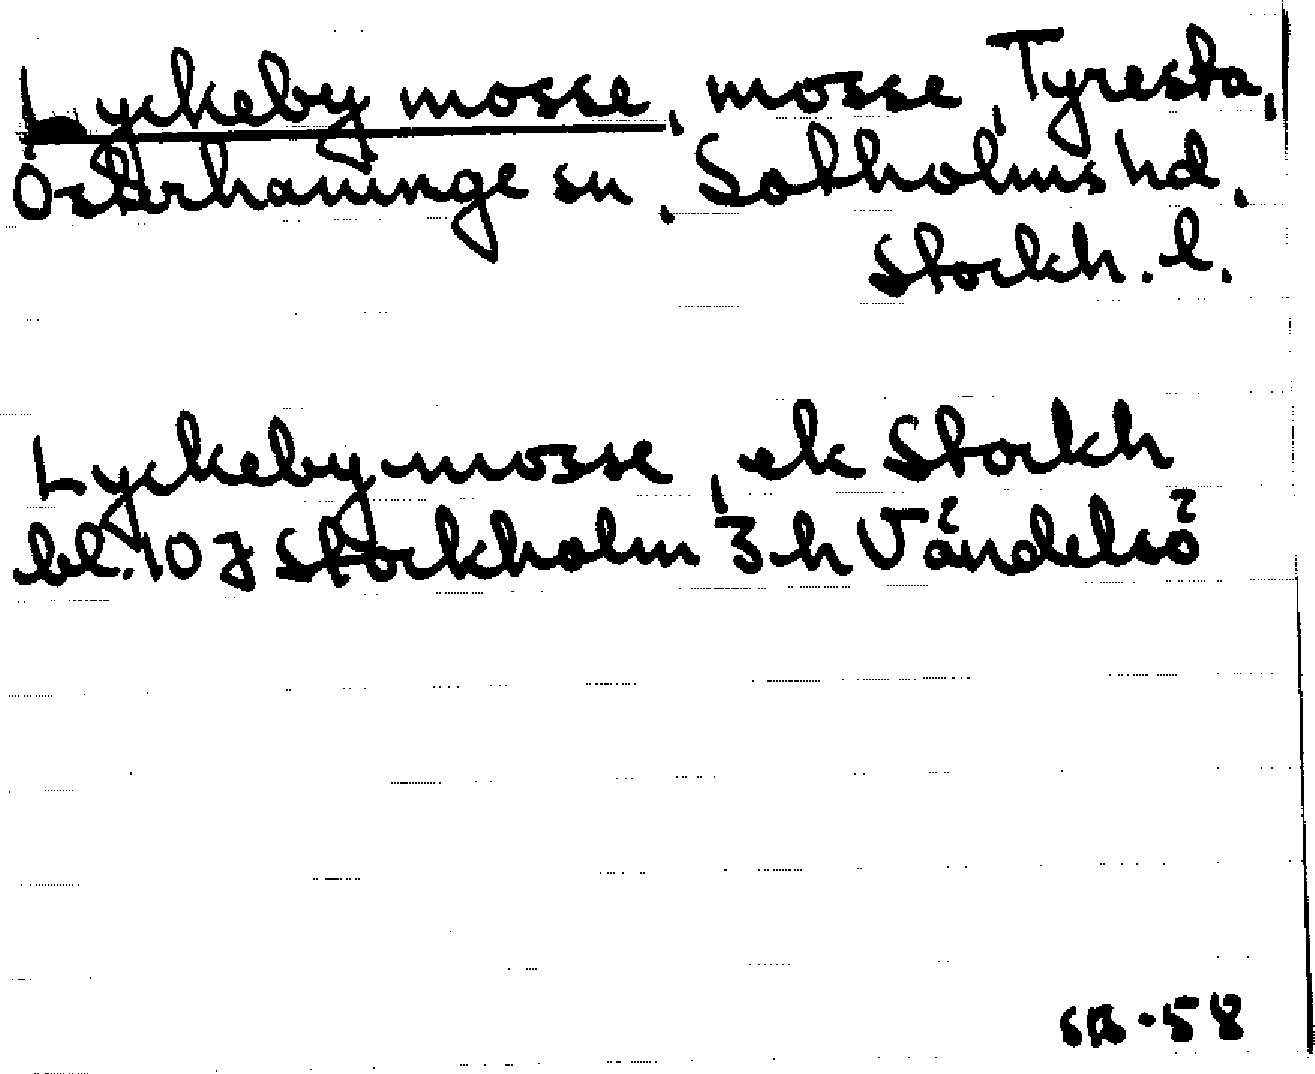 Lyckeby mosse, mosse, Tyresta,
Österhaninge sn, Sotholms hd,
Stockh. l.
Lyckebymosse, ek Stockh
bl. 107 Stockholm 3 h Vändelsö
SR-58